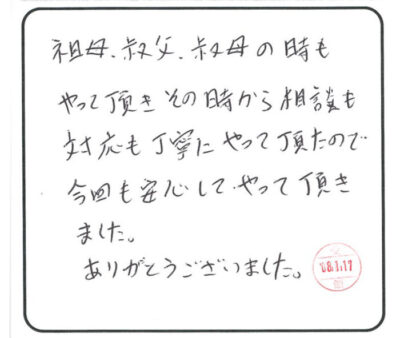 祖母、叔父、叔母の時も
やって頂きその時から相談も
対応も丁寧にやって頂たので
今回も安心してやって頂き
ました。
ありがとうございました。
'08.1.17